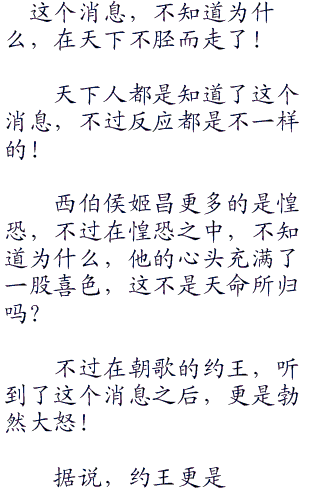 这个消息，不知道为什
么，在天下不胫而走了！
天下人都是知道了这个
消息，不过反应都是不一样
的！
西伯侯姬昌更多的是惶
恐，不过在惶恐之中，不知
道为什么，他的心头充满了
一股喜色，这不是天命所归
吗？
不过在朝歌的约王，听
到了这个消息之后，更是勃
然大怒！
据说，约王更是